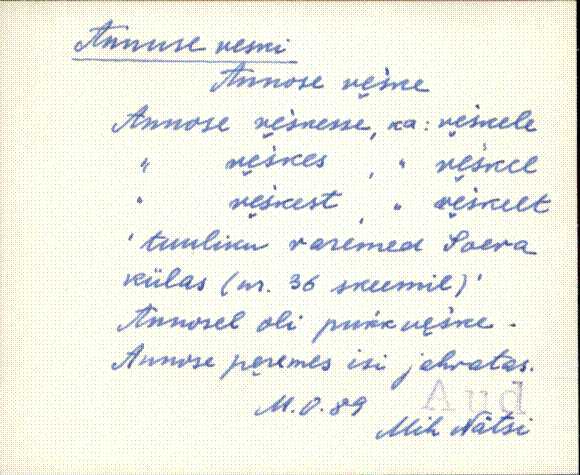 Annuse veski
Annose vęśke
Annose vęśkesse, ka: vęśkele
" vęśkes , " vęśkel
" vęśkest , " vęśkelt
' tuuliku varemed Soeva
külas (nr. 36 skeemil)'
Annosel oli pukkvęśke.
Annose pęremes isi jahvatas.
Aud
M.O. 89
Mih Nätsi